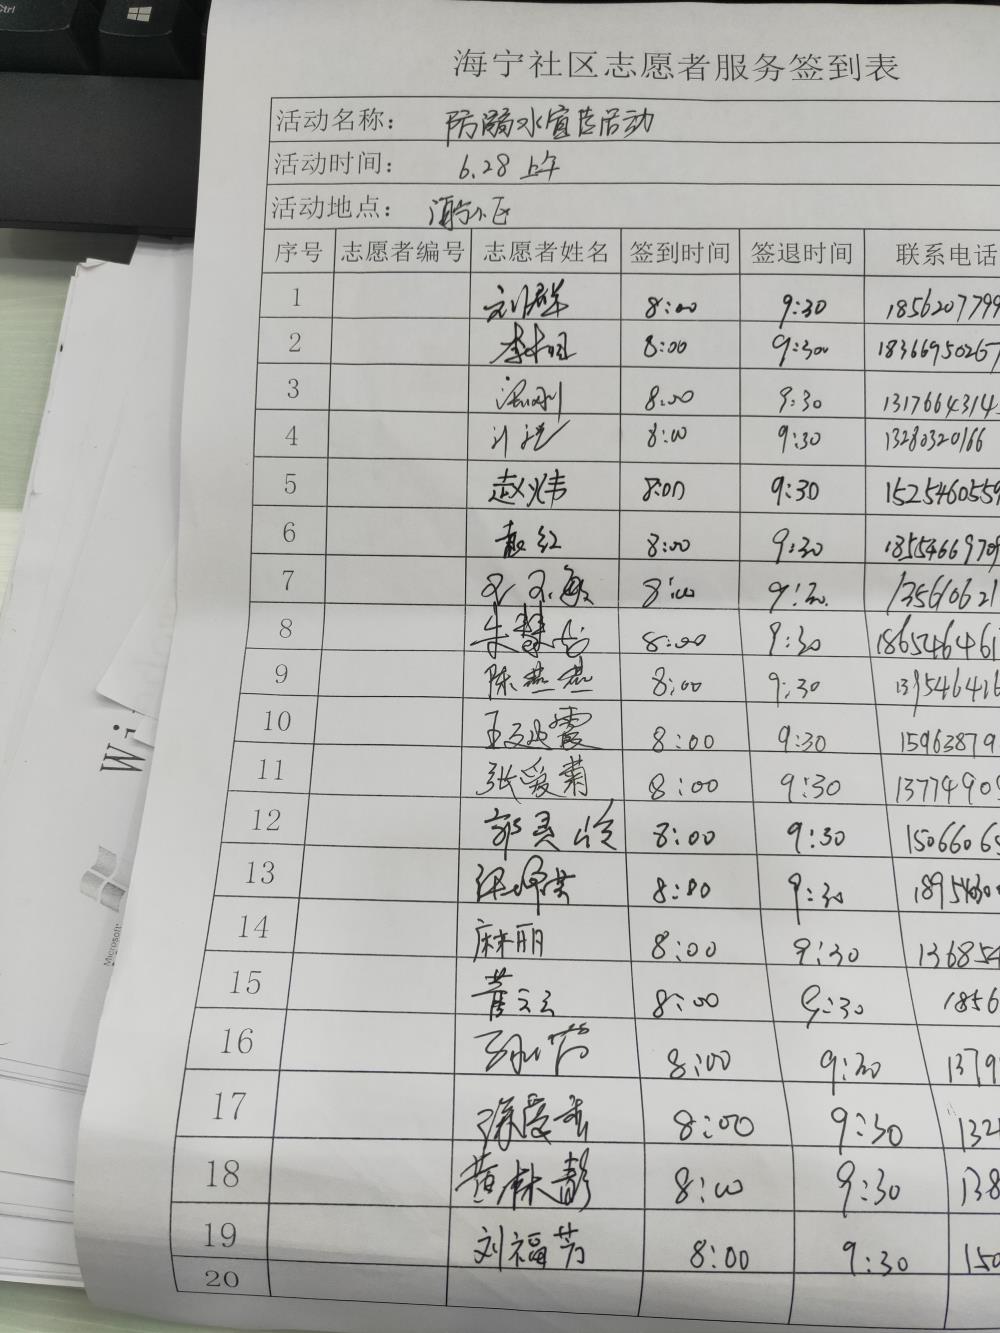 Ctrl
海宁社区志愿者服务签到表
活动名称： 防溺水宣传活动
活动时间： 6.28 上午
活动地点： 海宁小区
序号 志愿者编号 志愿者姓名 签到时间 签退时间 联系电话
1 刘群 8:00 9:30 1856207799
2 8:00 9:30 18366950267
3 8:00 9:30 1317664314
4 8:00 9:30 13280320166
5 赵炜 8:00 9:30 1525460559
6 赵红 8:00 9:30 1855466970
7 8:00 9:30 135610621
8 朱慧 8:00 9:30 1865464461
9 陈燕燕 8:00 9:30 139546416
10 8:00 9:30 15963879
11 张爱菊 8:00 9:30 13774909
12 郭灵玲 8:00 9:30 1506606
13 8:00 9:30
14 麻丽 8:00 9:30 136854
15 黄云云 8:00 9:30 1856
16 8:00 9:30 1379
17 8:00 9:30 132
18 黄麻静 8:00 9:30 138
19 刘福芳 8:00 9:30 150
20
Wi
Microsoft